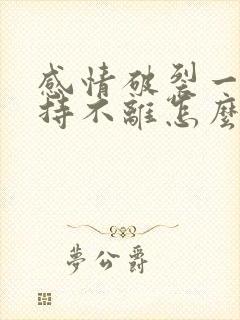 感情破裂一
持不離怎麼
夢公爵